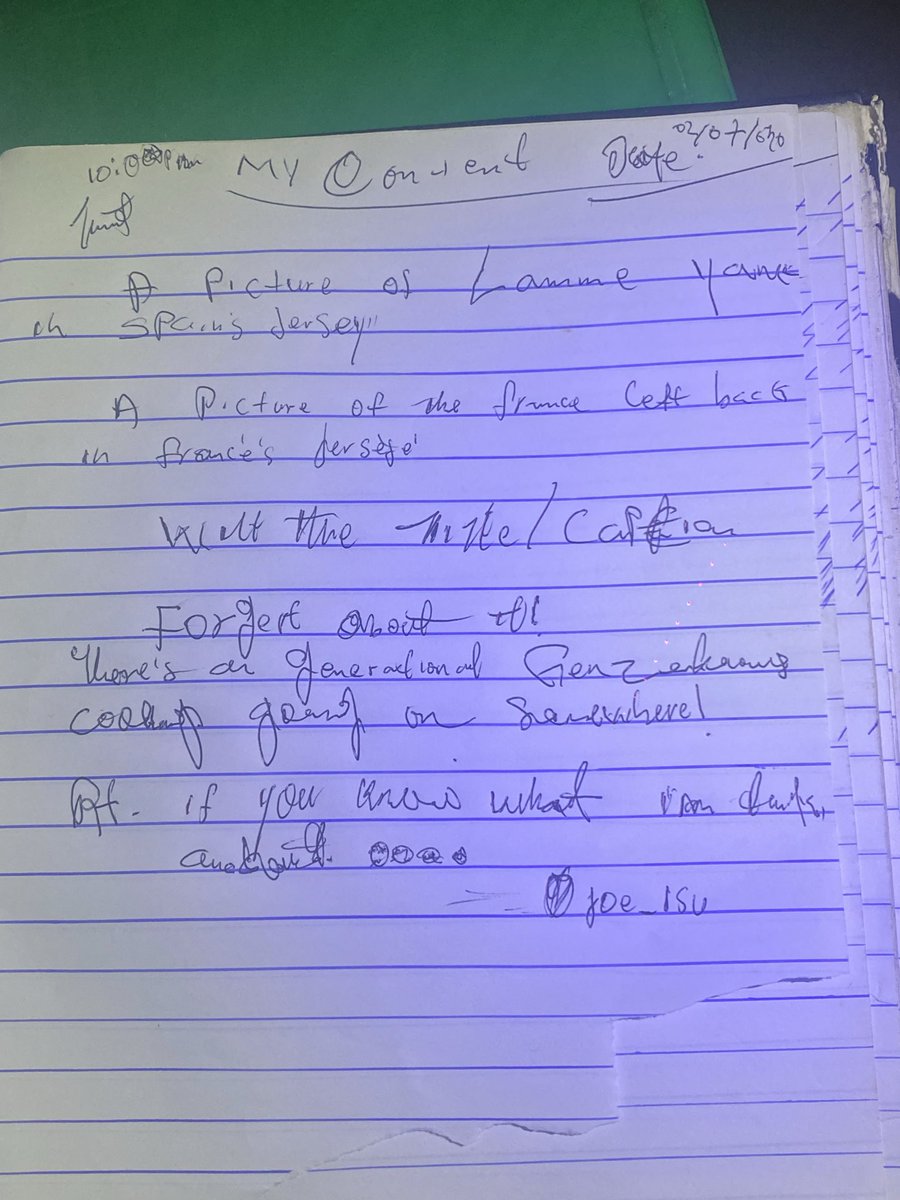 My Content Date: 02/07/
A Picture of Lamine
in Spain's Jersey"
A Picture of the france left back
in france's Jerseje'
With the Title/Caption
Forgert about it!
There's a generational Genz
cooking going on Somewhere!
Pt. if you know what I'm
joe_isu